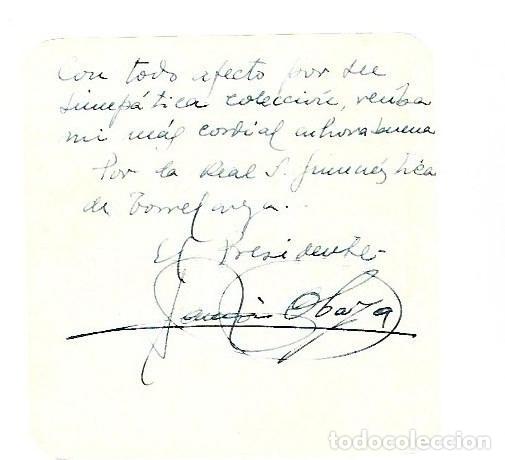 Con todo afecto por su
simpática colección, reciba
mi más cordial enhorabuena
Por la Real S. Gimnástica
de Torrelavega..
El Presidente
Ramón
todocoleccion
todocoleccion.net